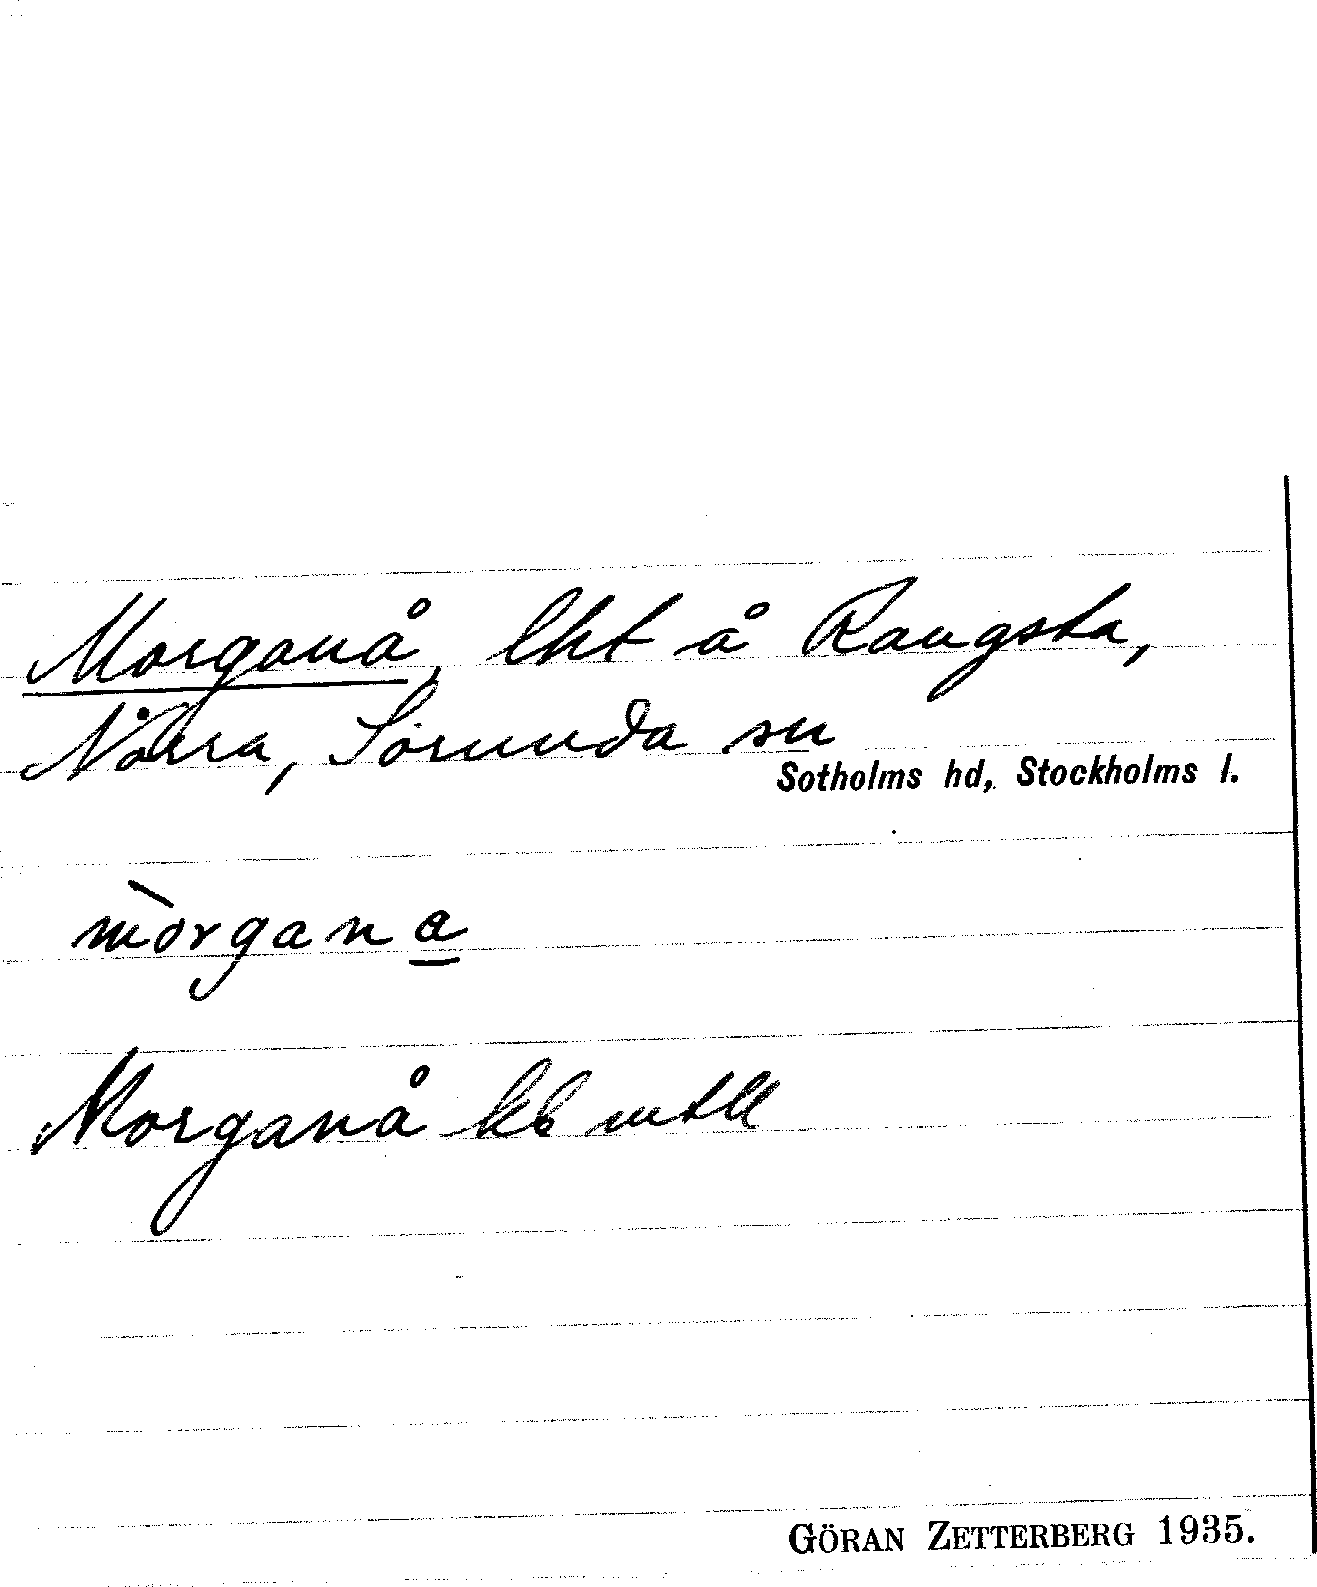 Morganå, lht å Rangsta,
Norra, Sorunda sn
Sotholms hd, Stockholms l.
mòrgana
Morganå kb mtll
GÖRAN ZETTERBERG 1935.